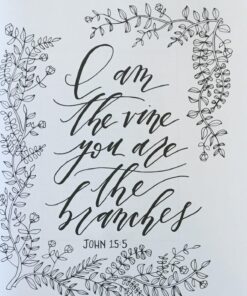 I am
the vine
you are
the
branches
JOHN 15:5